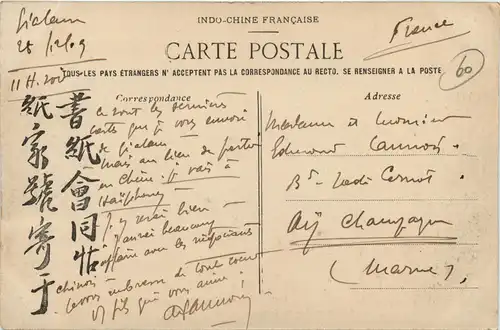 INDO-CHINE FRANÇAISE
CARTE POSTALE
TOUS LES PAYS ÉTRANGERS N'ACCEPTENT PAS LA CORRESPONDANCE AU RECTO. SE RENSEIGNER A LA POSTE
France
60
Gialam
25/12/09
11 H.
Correspondance
ce sont les dernières
carte que je vous envoie
de Gialam
mais au lieu de partir
en Chine je vais à
Haiphong
J'y serai bien
J'aurai beaucoup
affaire avec les négociants
chinois
Je vous embrasse de tout coeur
fils qui vous aime
書紙會同帖
紙家號寄于
Adresse
Madame et Monsieur
Edmond
Bd Sadi Carnot
Aÿ Champagne
(Marne)